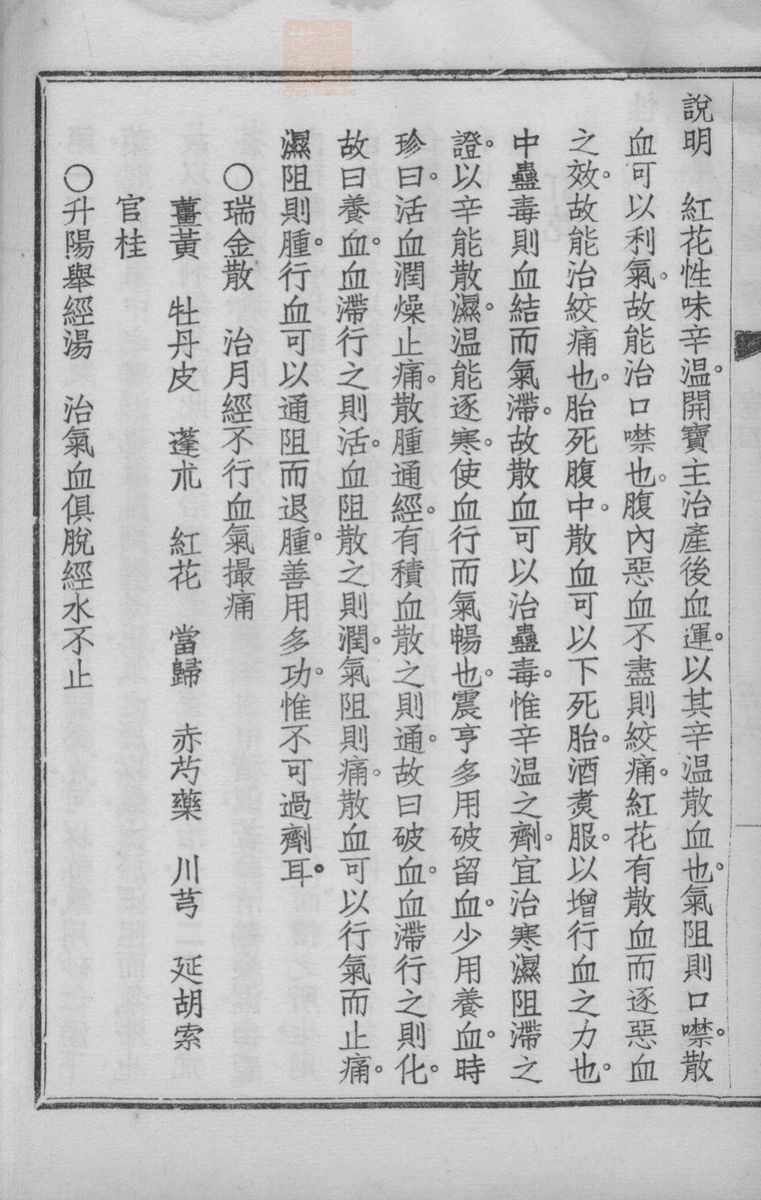 說明　紅花性味辛温。開寶主治產後血運。以其辛温散血也。氣阻則口噤。散
血可以利氣。故能治口噤也。腹內惡血不盡則絞痛。紅花有散血而逐惡血
之效。故能治絞痛也。胎死腹中。散血可以下死胎。酒煑服。以增行血之力也。
中蠱毒則血結而氣滯。故散血可以治蠱毒。惟辛温之劑。宜治寒濕阻滯之
證。以辛能散濕。温能逐寒。使血行而氣暢也。震亨多用破留血。少用養血。時
珍曰。活血潤燥止痛。散腫通經。有積血散之則通。故曰破血。血滯行之則化。
故曰養血。血滯行之則活。血阻散之則潤。氣阻則痛。散血可以行氣而止痛。
濕阻則腫。行血可以通阻而退腫。善用多功。惟不可過劑耳。
〇瑞金散　治月經不行血氣撮痛
薑黃　牡丹皮　蓬朮　紅花　當歸　赤芍藥　川芎　延胡索
官桂
〇升陽舉經湯　治氣血俱脫經水不止